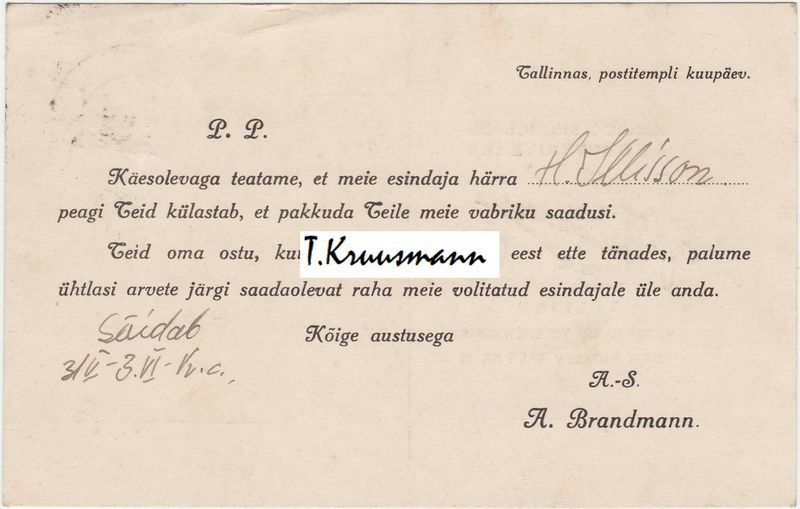 Tallinnas, postitempli kuupäev.
P. P.
Käesolevaga teatame, et meie esindaja härra H. Illisson
peagi Teid külastab, et pakkuda Teile meie vabriku saadusi.
Teid oma ostu, kui T.Kruusmann eest ette tänades, palume
ühtlasi arvete järgi saadaolevat raha meie volitatud esindajale üle anda.
Sõidab
31V-3.VI-
Kõige austusega
A.-S.
A. Brandmann.